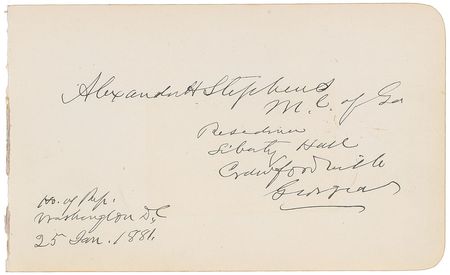 Alexander H Stephens
M. C. of Ga
Residence
Liberty Hall
Crawfordville
Georgia
Ho. of Rep.
Washington D.C
25 Jan. 1881.